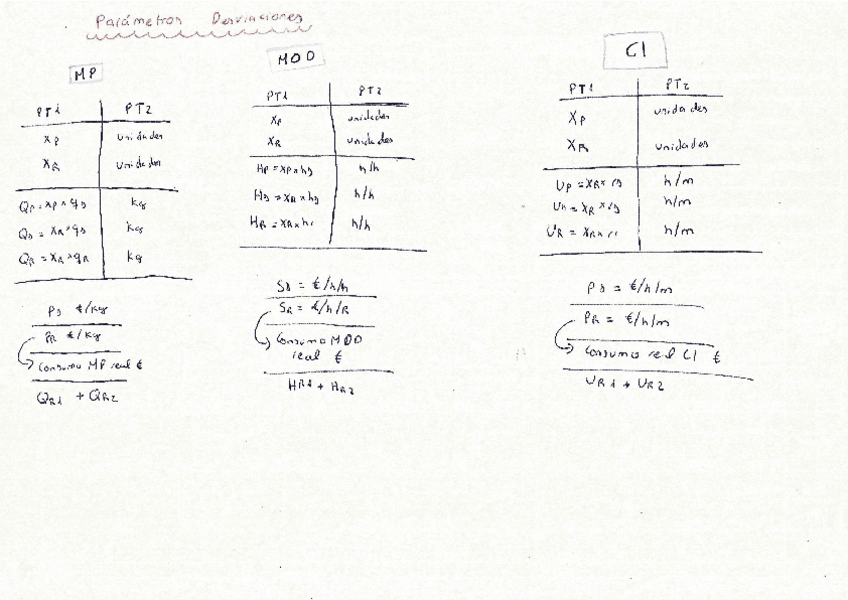 Parámetros Desviaciones
MP
PT1 PT2
XP unidades
XR unidades
QP = XP × qs kg
Qs = XR × qs kg
QR = XR × qR kg
Ps €/kg
PR €/kg
Consumo MP real €
QR1 + QR2
MOD
PT1 PT2
XP unidades
XR unidades
HP = XP × hs h/h
Hs = XR × hs h/h
HR = XR × hr h/h
Ss = €/h/h
SR = €/h/R
Consumo MOD
real €
HR1 + HR2
CI
PT1 PT2
XP unidades
XR unidades
UP = XR × rs h/m
= XR × rs h/m
UR = XR × h/m
Ps = €/h/m
PR = €/h/m
Consumo real CI €
UR1 + UR2